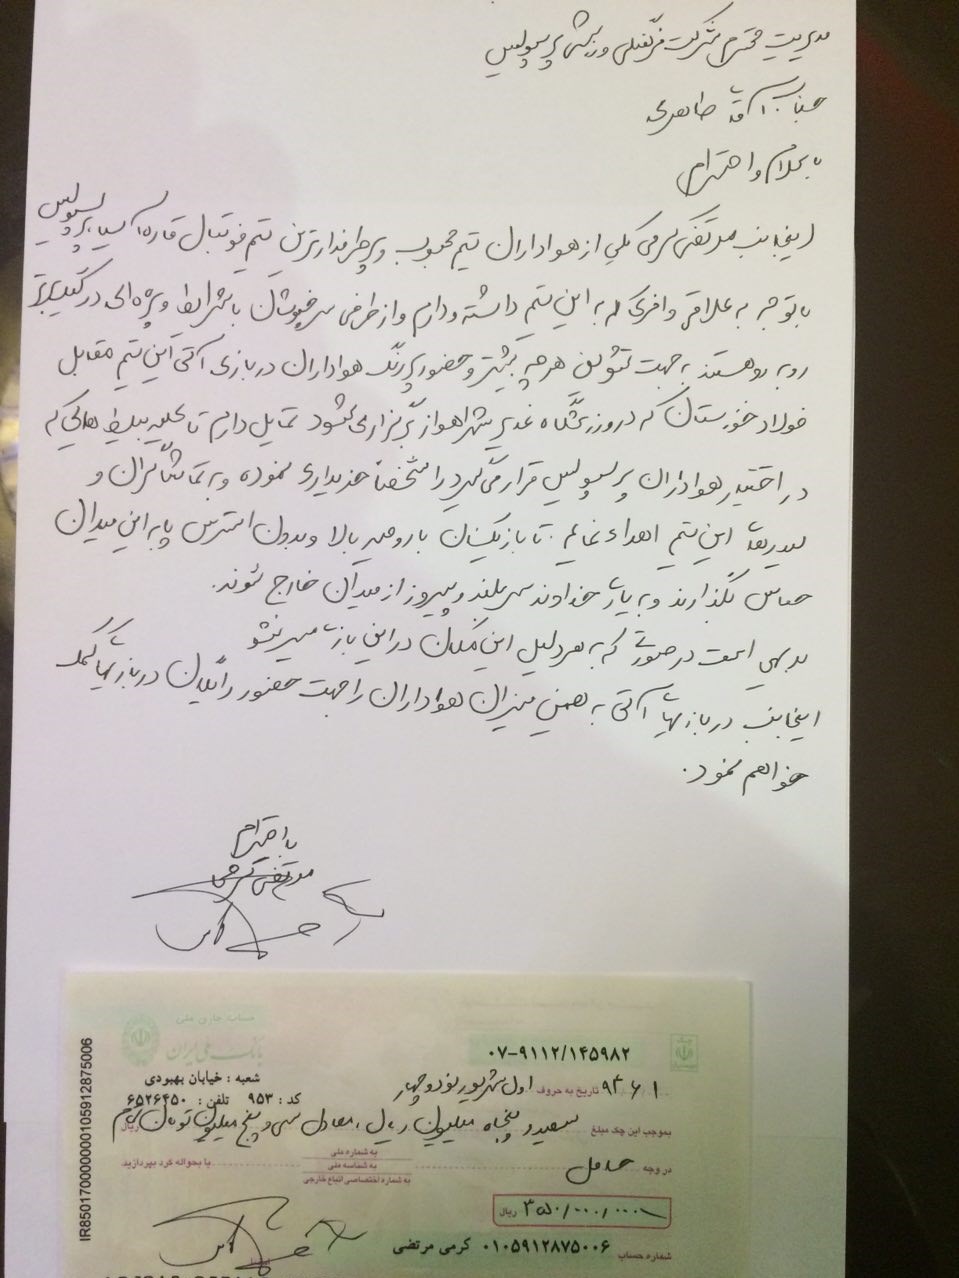 مدیریت محترم شرکت فرهنگی ورزشی پرسپولیس
جناب آقای طاهری
با سلام و احترام
اینجانب مرتضی کرمی یکی از هواداران تیم محبوب و پرطرفدارترین تیم فوتبال قاره آسیا، پرسپولیس
با توجه به علاقه وافری که به این تیم داشته و دارم و از طرفی سرخپوشان با شرایط ویژه‌ای در لیگ برتر
روبه رو هستند به جهت تشویق هر چه بیشتر و حضور پررنگ هواداران در بازی آتی این تیم مقابل
فولاد خوزستان که در ورزشگاه غدیر شهر اهواز برگزار می‌شود تمایل دارم تا کلیه بلیط هایی که
در اختیار هواداران پرسپولیس قرار می‌گیرد را شخصاً خریداری نموده و به تماشاگران و
لیدرهای این تیم اهداء نمایم. تا بازیکنان با روحیه بالا و بدون استرس پا به این میدان
حساس بگذارند و به یاری خداوند سربلند و پیروز از میدان خارج شوند.
بدیهی است در صورتی که به هر دلیل این امکان در این بازی میسر نشود
اینجانب در بازیهای آتی به همین میزان هواداران را جهت حضور رایگان در بازیها کمک
خواهم نمود.
با احترام
مرتضی کرمی
حساب جاری ملی
بانک ملی ایران
۰۷-۹۱۱۲/۱۴۵۹۸۲
شعبه : خیابان بهبودی
کد : ۹۵۳ تلفن : ۶۵۲۶۴۵۰
۹۴/۶/۱ تاریخ به حروف اول شهریور نود و چهار
بموجب این چک مبلغ سیصد و پنجاه میلیون ریال، معادل سی و پنج میلیون تومان ریال
به شماره ملی
در وجه حامل به شناسه ملی یا بحواله کرد بپردازید
به شماره اختصاصی اتباع خارجی
۳۵۰/۰۰۰/۰۰۰ ریال
شماره حساب ۰۱۰۵۹۱۲۸۷۵۰۰۶ کرمی مرتضی
IR850170000000105912875006